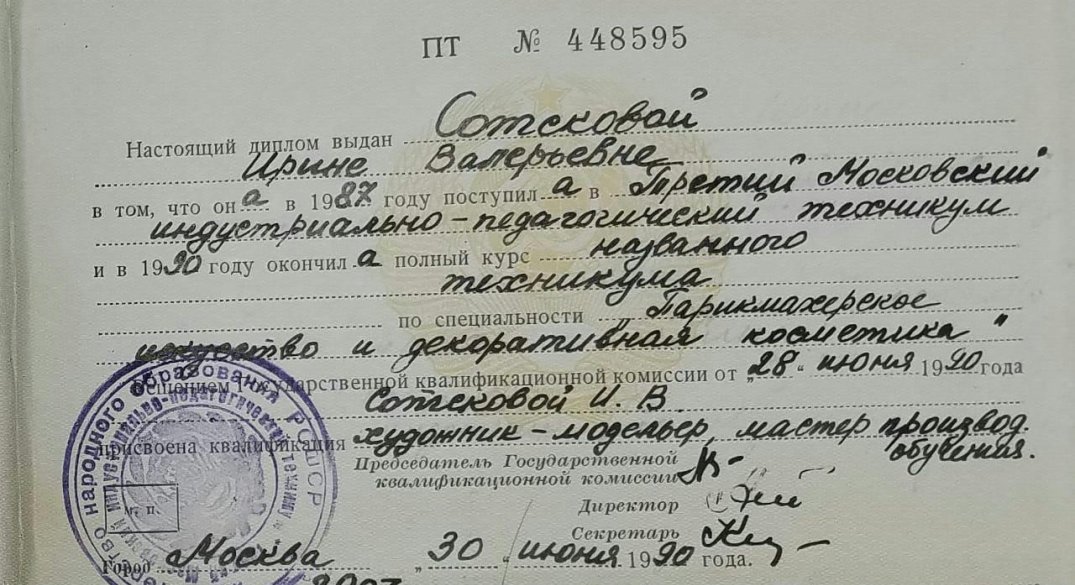 ПТ № 448595
Настоящий диплом выдан Сотсковой
Ирине Валерьевне
в том, что она в 1987 году поступила в Третий Московский
индустриально-педагогический техникум
и в 1990 году окончила полный курс названного
техникума
по специальности „Парикмахерское
искусство и декоративная косметика"
Решением Государственной квалификационной комиссии от „28" июня 1990 года
Сотсковой И. В.
присвоена квалификация художник-модельер, мастер производ.
обучения.
Председатель Государственной
квалификационной комиссии
Директор
Секретарь
М. П.
Город Москва „30" июня 1990 года.
народного образования РСФСР